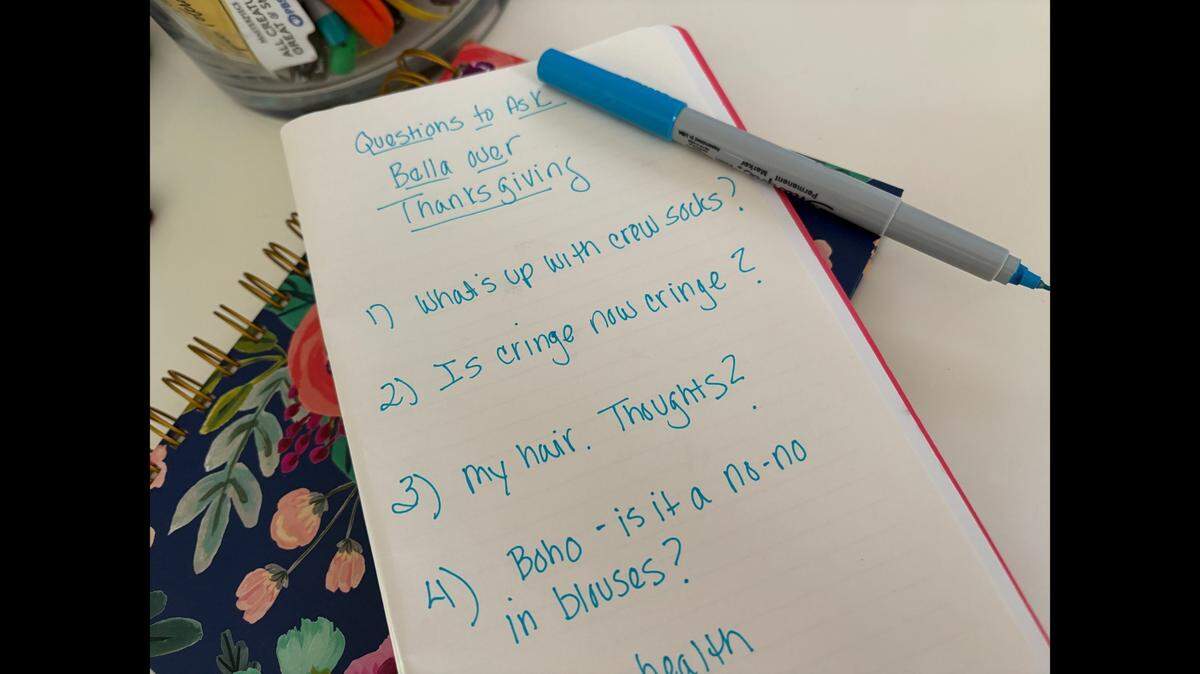 ALL CREATU
GREAT & SM
Questions to Ask
Bella over
Thanksgiving
1) What's up with crew socks?
2) Is cringe now cringe?
3) My hair. Thoughts?
4) Boho - is it a no-no
in blouses?
health
Permanent
Marker